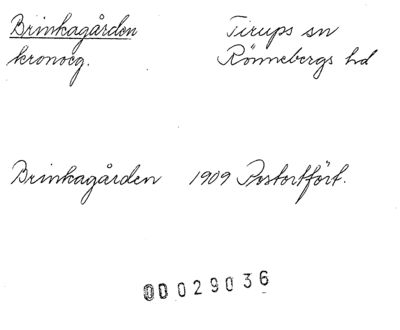 Brinkagården Tirups sn
kronoeg. Rönnebergs hd
Brinkagården 1909 Postortfört.
00029036